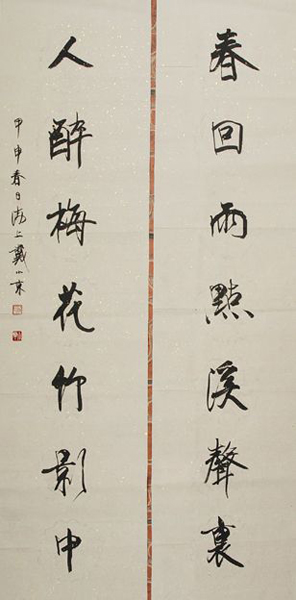 春回雨點溪聲裏
人醉梅花竹影申
甲申春日海上戴小京